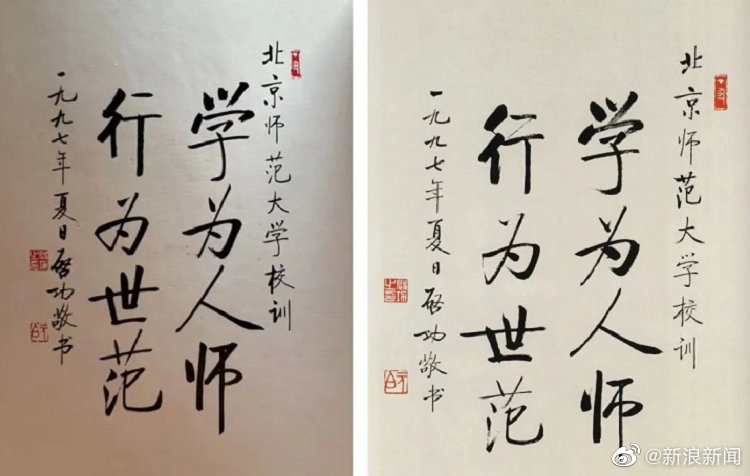 北京师范大学校训
学为人师
行为世范
一九九七年夏日启功敬书
北京师范大学校训
学为人师
行为世范
一九九七年夏日启功敬书
@新浪新闻